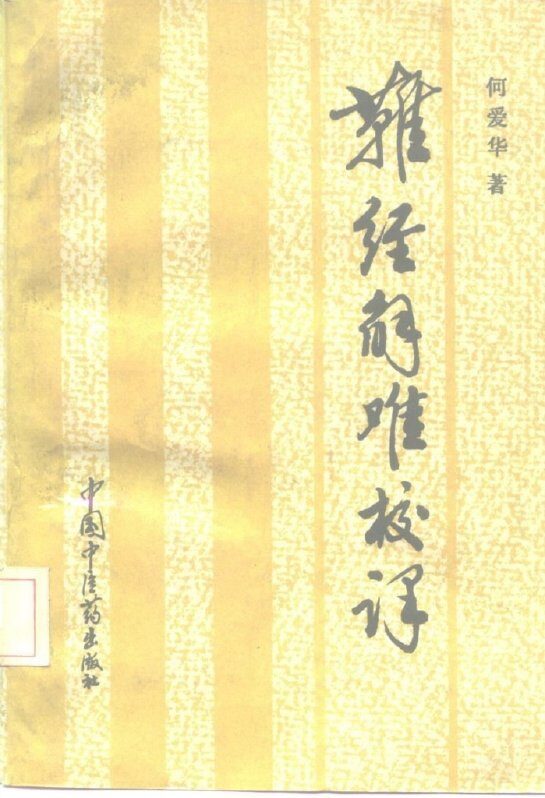 何爱华 著
難经解难校译
中国中医药出版社